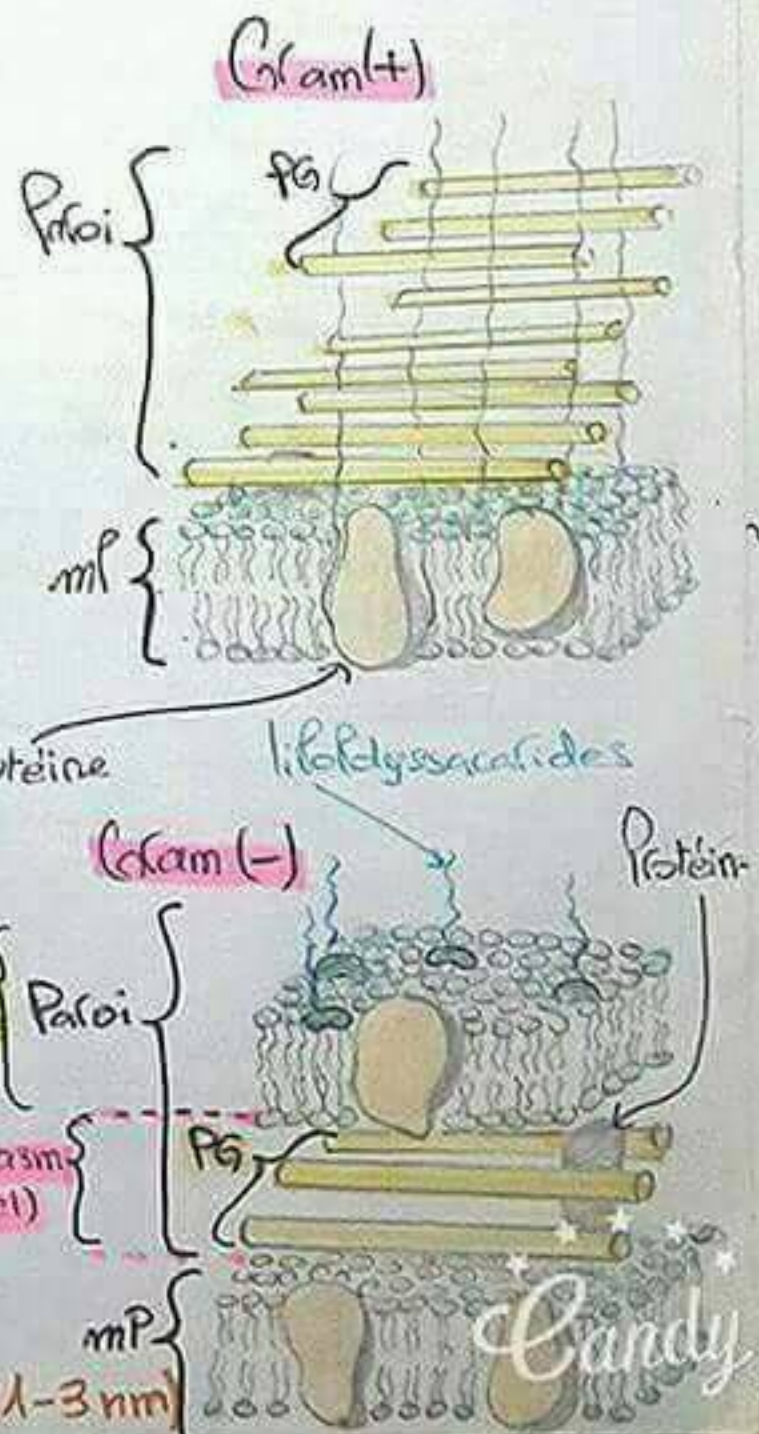 Gram(+)
PG
Paroi
mP
téine
lipopolyssacarides
Gram (-)
Protéin
Paroi
PG
asm
mP
1-3nm)
Candy